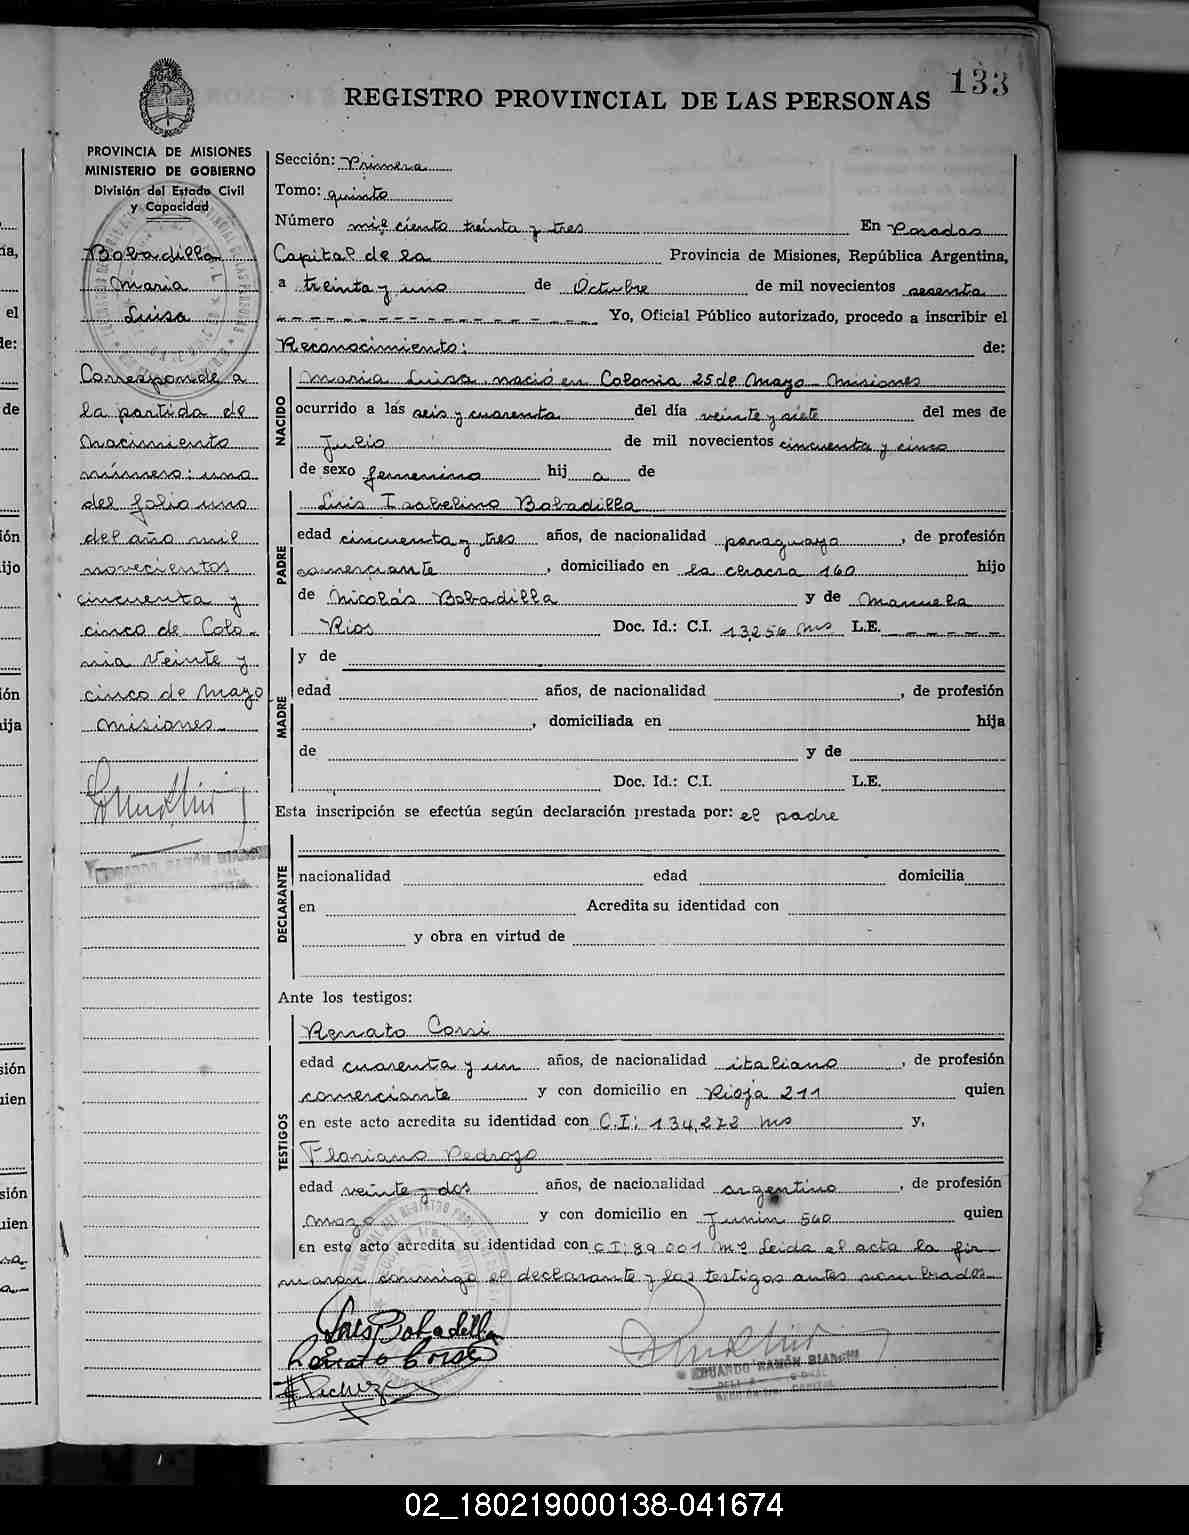 133
REGISTRO PROVINCIAL DE LAS PERSONAS
PROVINCIA DE MISIONES
MINISTERIO DE GOBIERNO
División del Estado Civil
y Capacidad
Bobadilla
Maria
Luisa
Corresponde a
la partida de
Nacimiento
número: uno
del folio uno
del año mil
novecientos
cincuenta y
cinco de Colo-
nia Veinte y
cinco de Mayo
Misiones.-
EDUARDO RAMÓN BIANCHI
Sección: Primera
Tomo: quinto
Número mil ciento treinta y tres En Posadas
Capital de la Provincia de Misiones, República Argentina,
a treinta y uno de Octubre de mil novecientos sesenta
Yo, Oficial Público autorizado, procedo a inscribir el
Reconocimiento: de:
NACIDO
Maria Luisa nació en Colonia 25 de Mayo - Misiones
ocurrido a las seis y cuarenta del día veinte y siete del mes de
Julio de mil novecientos cincuenta y cinco
de sexo femenino hij a de
PADRE
Luis Isabelino Bobadilla
edad cincuenta y tres años, de nacionalidad paraguaya, de profesión
comerciante, domiciliado en la chacra 160 hijo
de Nicolás Bobadilla y de Manuela
Rios Doc. Id.: C.I. 13.256 Mns L.E. - - - - -
MADRE
y de
edad años, de nacionalidad , de profesión
, domiciliada en hija
de y de
Doc. Id.: C.I. L.E.
Esta inscripción se efectúa según declaración prestada por: el padre
DECLARANTE
nacionalidad edad domicilia
en Acredita su identidad con
y obra en virtud de
Ante los testigos:
TESTIGOS
Renato Corsi
edad cuarenta y un años, de nacionalidad italiano, de profesión
comerciante y con domicilio en Rioja 211 quien
en este acto acredita su identidad con C.I: 134.272 Mns y,
Floriano Pedrozo
edad veinte y dos años, de nacionalidad argentino, de profesión
mozo y con domicilio en Junin 560 quien
en este acto acredita su identidad con C I: 89 001 Ms Leida el acta la fir
maron conmigo el declarante y los testigos antes nombrados
Luis Bobadilla
Renato Corsi
EDUARDO RAMÓN BIANCHI
02_180219000138-041674